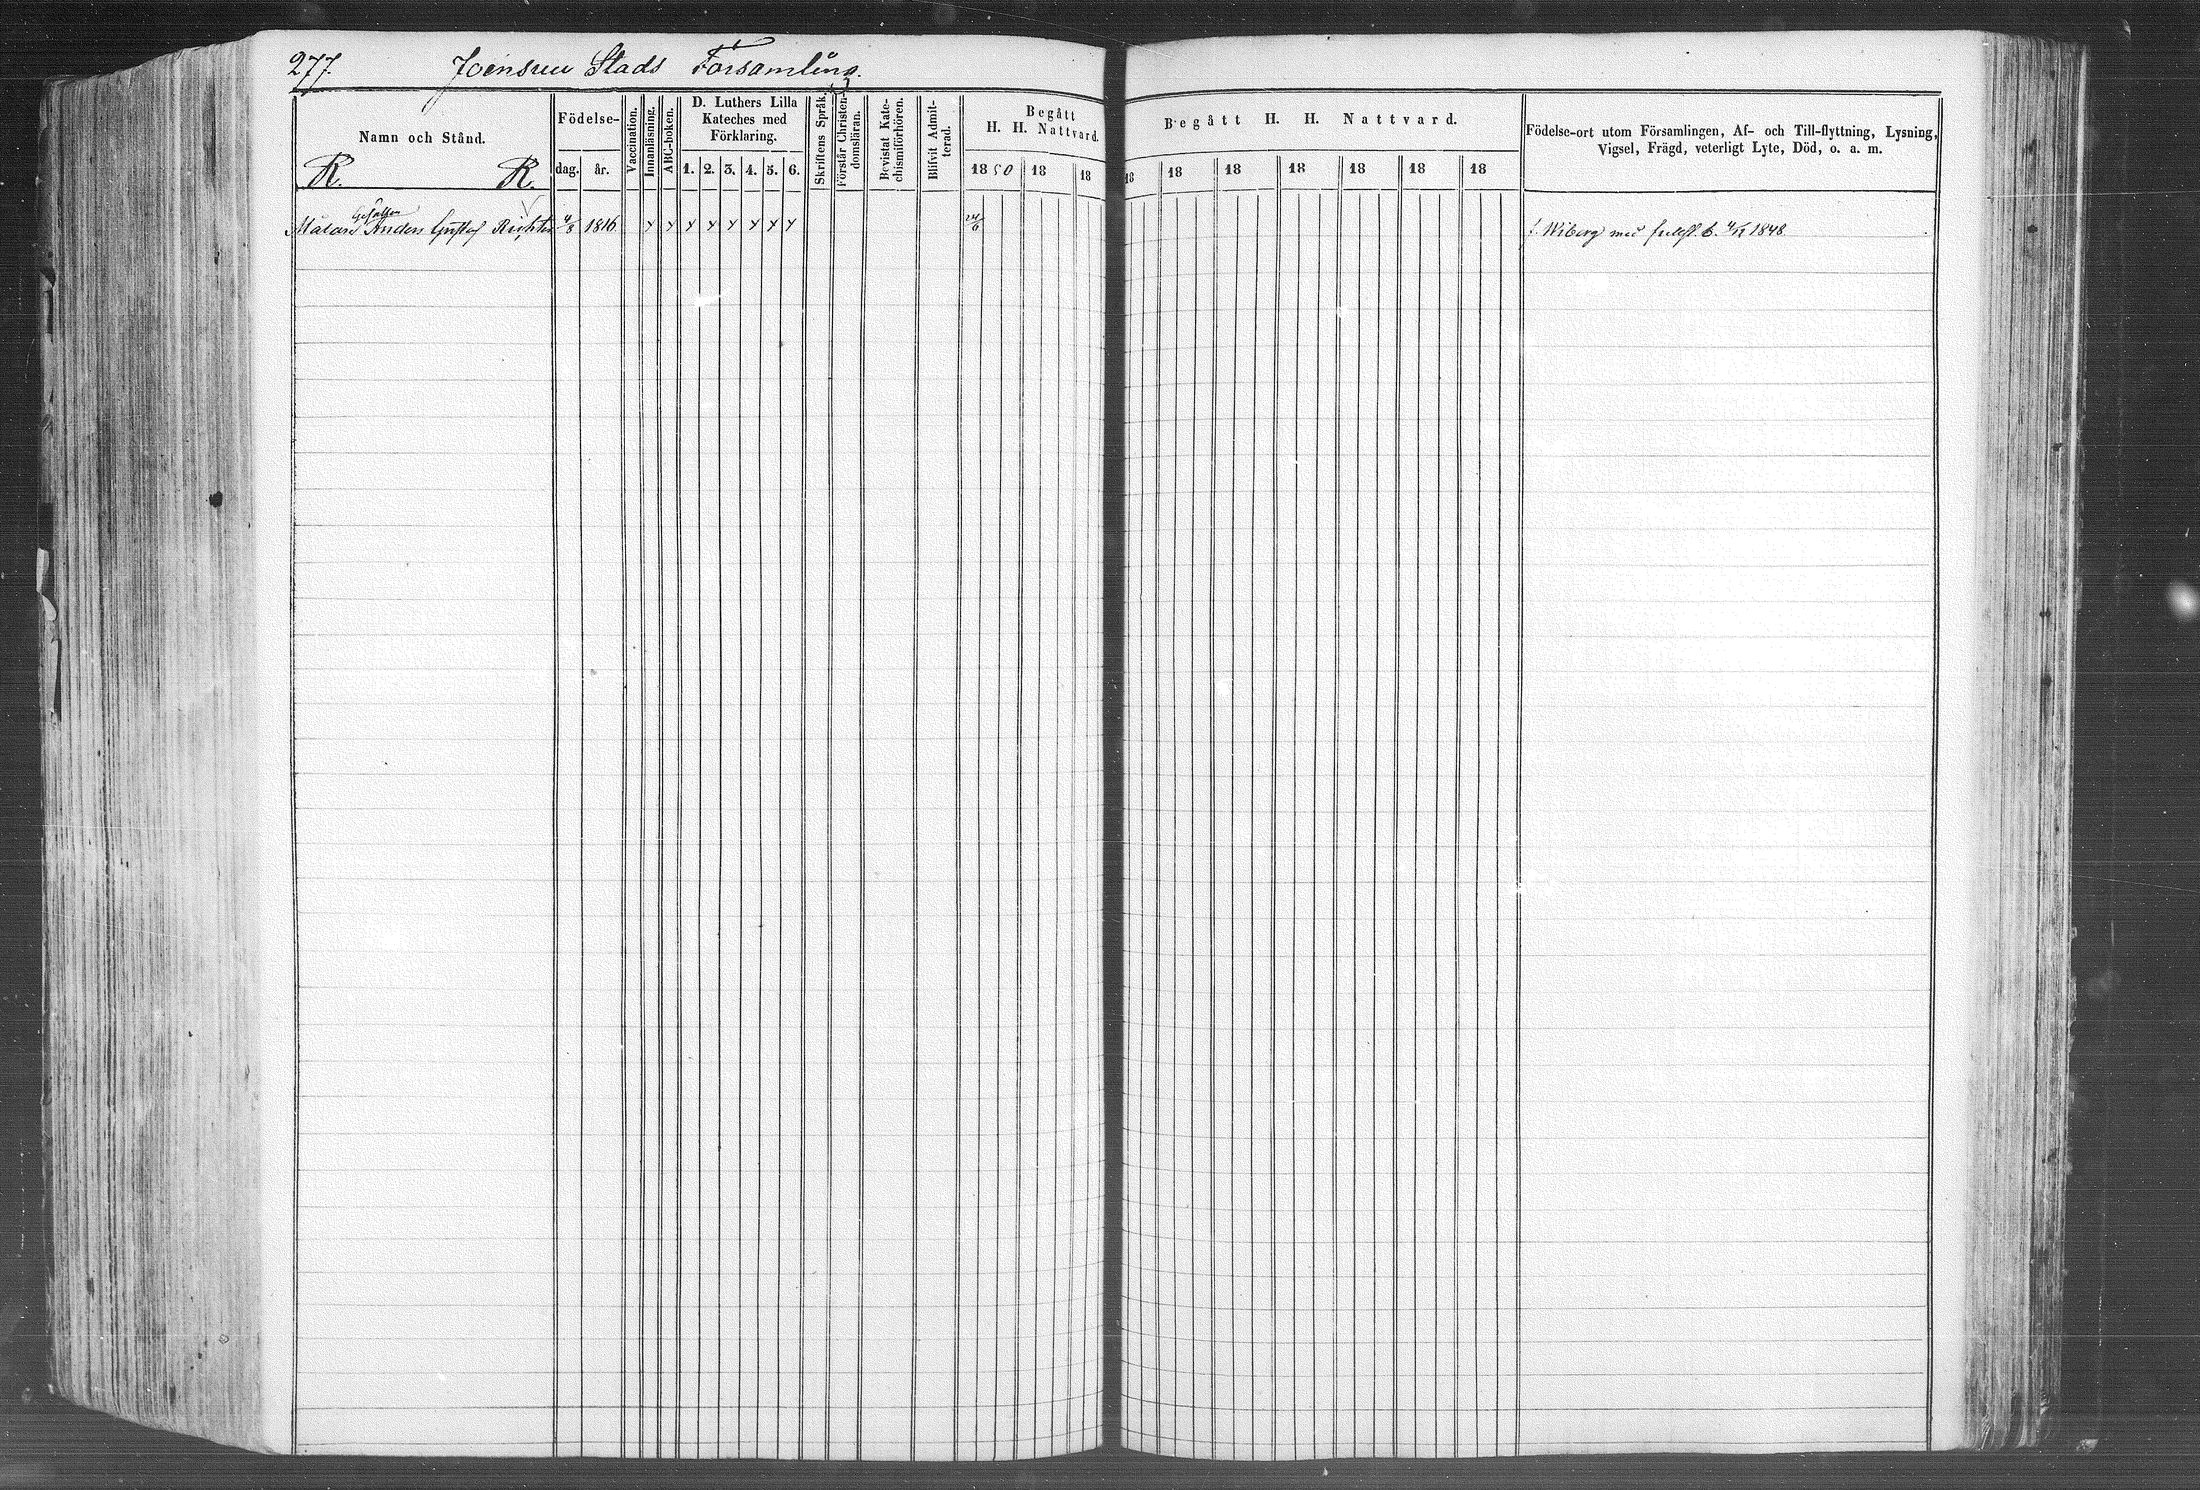 277. Joensuu Stads Församling.
Namn och Stånd.
R. R.
Födelse-
dag. år.
Vaccination.
Innanläsning.
ABC-boken.
D. Luthers Lilla
Kateches med
Förklaring.
1. 2. 3. 4. 5. 6.
Skriftens Språk.
Förstår Christen-
domsläran.
Bevistat Kate-
chismiförhören.
Blifvit Admit-
terad.
Begått
H. H. Nattvard.
1850 18 18
Begått H. H. Nattvard.
18 18 18 18 18 18 18
Födelse-ort utom Församlingen, Af- och Till-flyttning, Lysning,
Vigsel, Frägd, veterligt Lyte, Död, o. a. m.
Gesällen
Målare Anders Gustaf Richter 4/8 1816 x x x x x x x x 24/6 f. Wiborg med 1848